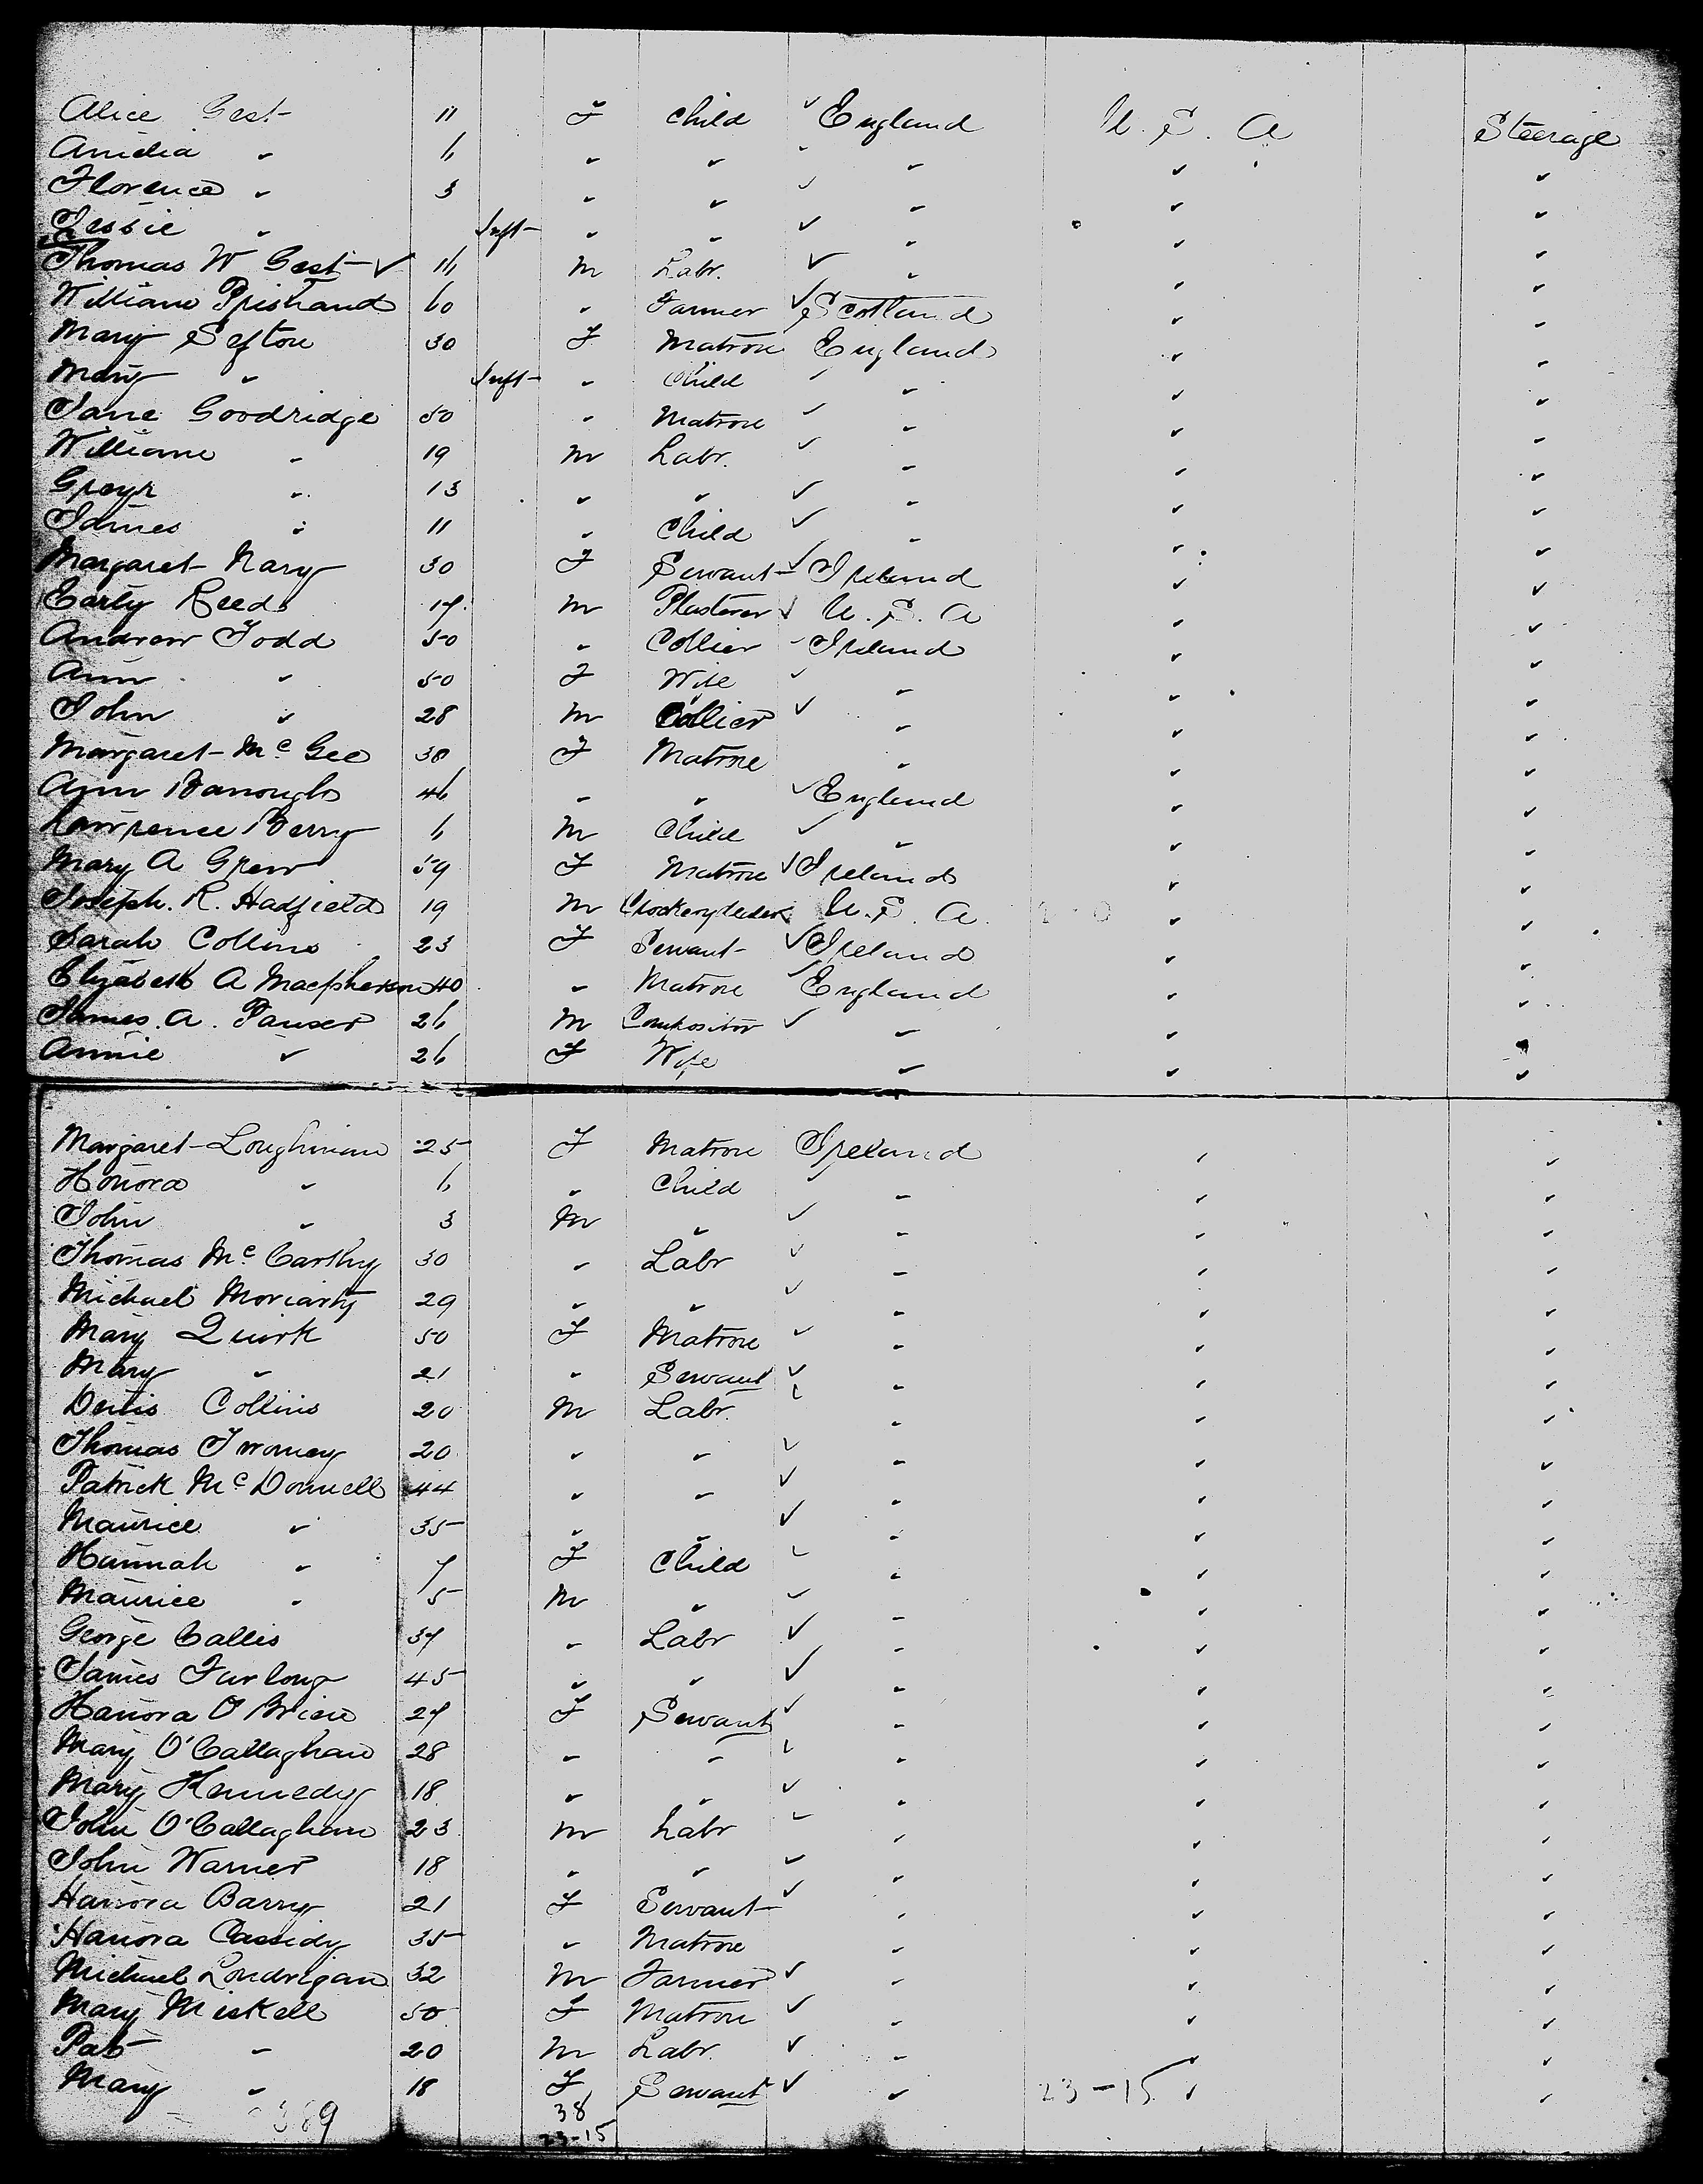 Alice Gest 11 F Child ✓ England U. S. A Steerage
Amelia " 6 " " " " " "
Florence " 3 " " ✓ " " "
Jessie " Inft " " ✓ " " "
Thomas W Gest ✓ 16 M Labr. ✓ " " "
William 60 " Farmer ✓ Scotland " "
Mary Sefton 30 F Matron England " "
Mary " Inft " Child ✓ " " "
Jane Goodridge 50 " Matron ✓ " " "
William " 19 M Labr. ✓ " " "
" 13 " " ✓ " " "
James " 11 " Child ✓ " " "
Margaret Nary 30 F Servant ✓ Ireland " "
Early Reeds 17 M Plasterer ✓ U. S. A " "
Andrew Todd 50 " Collier Ireland " "
Ann " 50 F Wife ✓ " " "
John " 28 M Collier ✓ " " "
Margaret McGee 30 F Matron " " "
Ann 46 " " ✓ England " "
Lawrence Berry 6 M Child ✓ " " "
Mary A Grew 59 F Matron ✓ Ireland " "
Joseph. R. Hadfield 19 M U. S. A. " "
Sarah Collins 23 F Servant ✓ Ireland " "
Elizabeth A Macpherson 40 " Matron ✓ England " "
James. A. 26 M Compositor ✓ " " "
Annie " 26 F Wife " " "
Margaret Loughman 25 F Matron Ireland " "
Honora " 6 " Child ✓ " " "
John " 3 M " ✓ " " "
Thomas McCarthy 30 " Labr ✓ " " "
Michael Moriarty 29 " " ✓ " " "
Mary Quirk 50 F Matron ✓ " " "
Mary " 21 " Servant ✓ " " "
Denis Collins 20 M Labr. ✓ " " "
Thomas Twomey 20 " " ✓ " " "
Patrick McDonnell 44 " " ✓ " " "
Maurice " 35 " " ✓ " " "
Hannah " 7 F Child ✓ " " "
Maurice " 5 M " ✓ " " "
George Callis 37 " Labr ✓ " " "
James Furlong 45 " " ✓ " " "
Hanora O'Brien 27 F Servant ✓ " " "
Mary O'Callaghan 28 " " ✓ " " "
Mary Kennedy 18 " " ✓ " " "
John O'Callaghan 23 M Labr ✓ " " "
John Warner 18 " " ✓ " " "
Hanora Barry 21 F Servant ✓ " " "
Hanora Cassidy 35 " Matron " " "
Michael Londrigan 32 M Farmer ✓ " " "
Mary Miskell 50 F Matron ✓ " " "
Pat " 20 M Labr. ✓ " " "
Mary " 18 F Servant ✓ " 23-15 " "
38
23-15